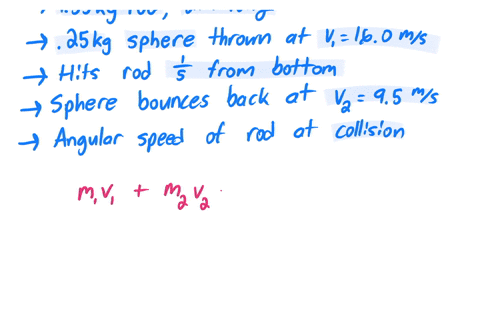 → .25kg sphere thrown at V₁ = 16.0 m/s
→ Hits rod 1/5 from bottom
→ Sphere bounces back at V₂ = 9.5 m/s
→ Angular speed of rod at collision
m₁V₁ + m₂V₂